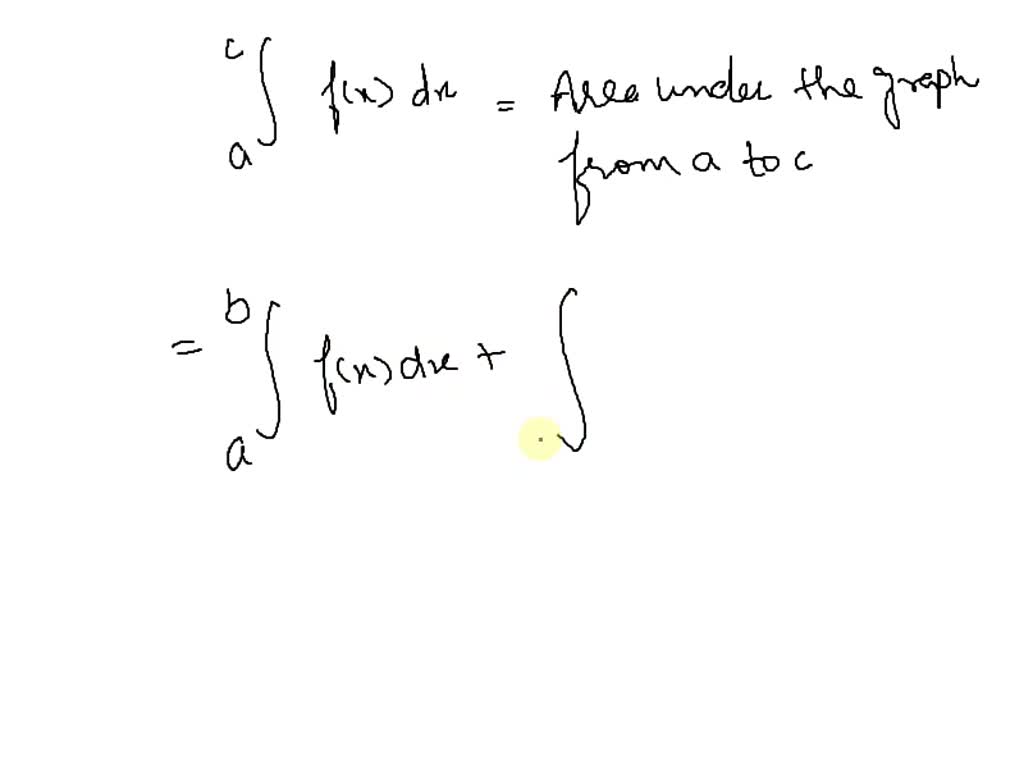 c∫a f(x) dx = Area under the graph
from a to c
= b∫a f(x) dx + ∫